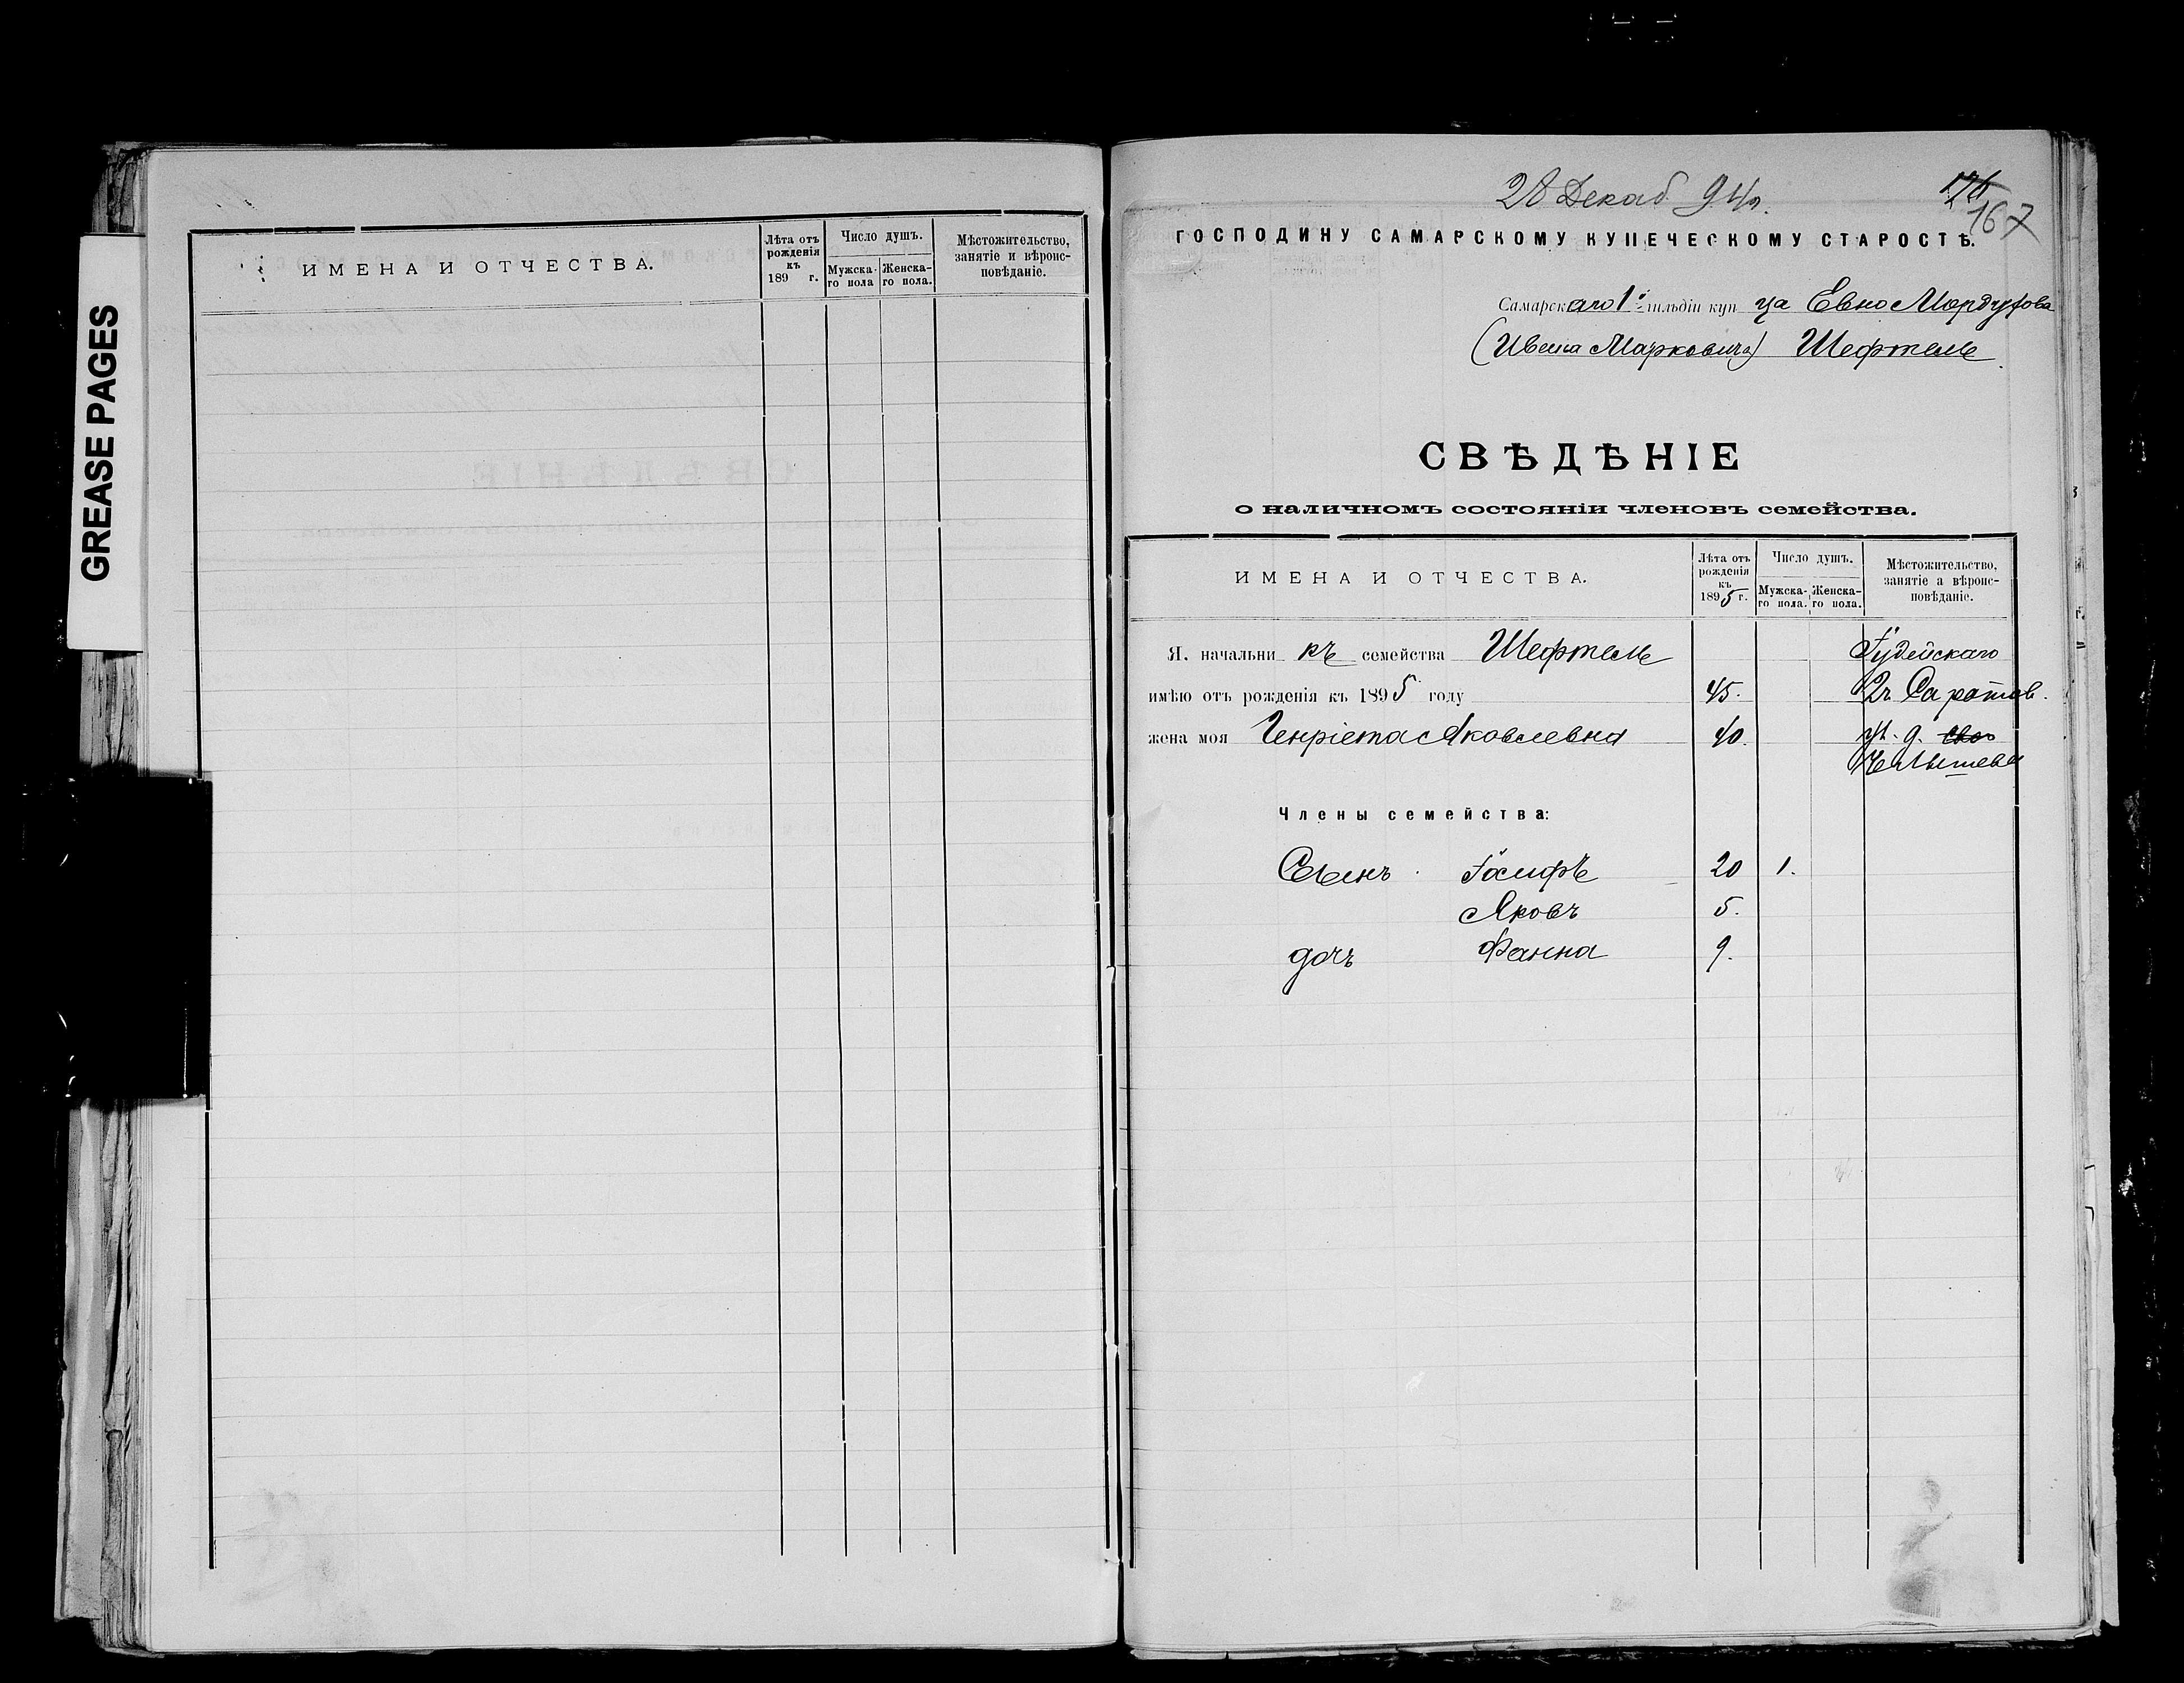 GREASE PAGES
ИМЕНА И ОТЧЕСТВА.
Лѣта отъ рожденія къ 189 г.
Число душъ.
Мужска-го пола
Женска-го пола.
Мѣстожительство, занятіе и вѣроис-повѣданіе.
28 Декаб 94 г.
176
167
ГОСПОДИНУ САМАРСКОМУ КУПЕЧЕСКОМУ СТАРОСТѢ.
Самарскаго 1й гильдіи купца Евно Мордухова
(Ивана Марковича) Шефтель
СВѢДѢНІЕ
о наличномъ состояніи членовъ семейства.
ИМЕНА И ОТЧЕСТВА.
Лѣта отъ рожденія къ 1895 г.
Число душъ.
Мужска-го пола.
Женска-го пола.
Мѣстожительство, занятіе а вѣроис-повѣданіе.
Я. начальникъ семейства Шефтель Іудейскаго
имѣю отъ рожденія къ 1895 году 45. Саратов.
жена моя Генріета Яковлевна 40. ул. д.
Челышева
Члены семейства:
Сынъ Іосифъ 20 1.
Яковъ 5.
дочь Фанна 9.